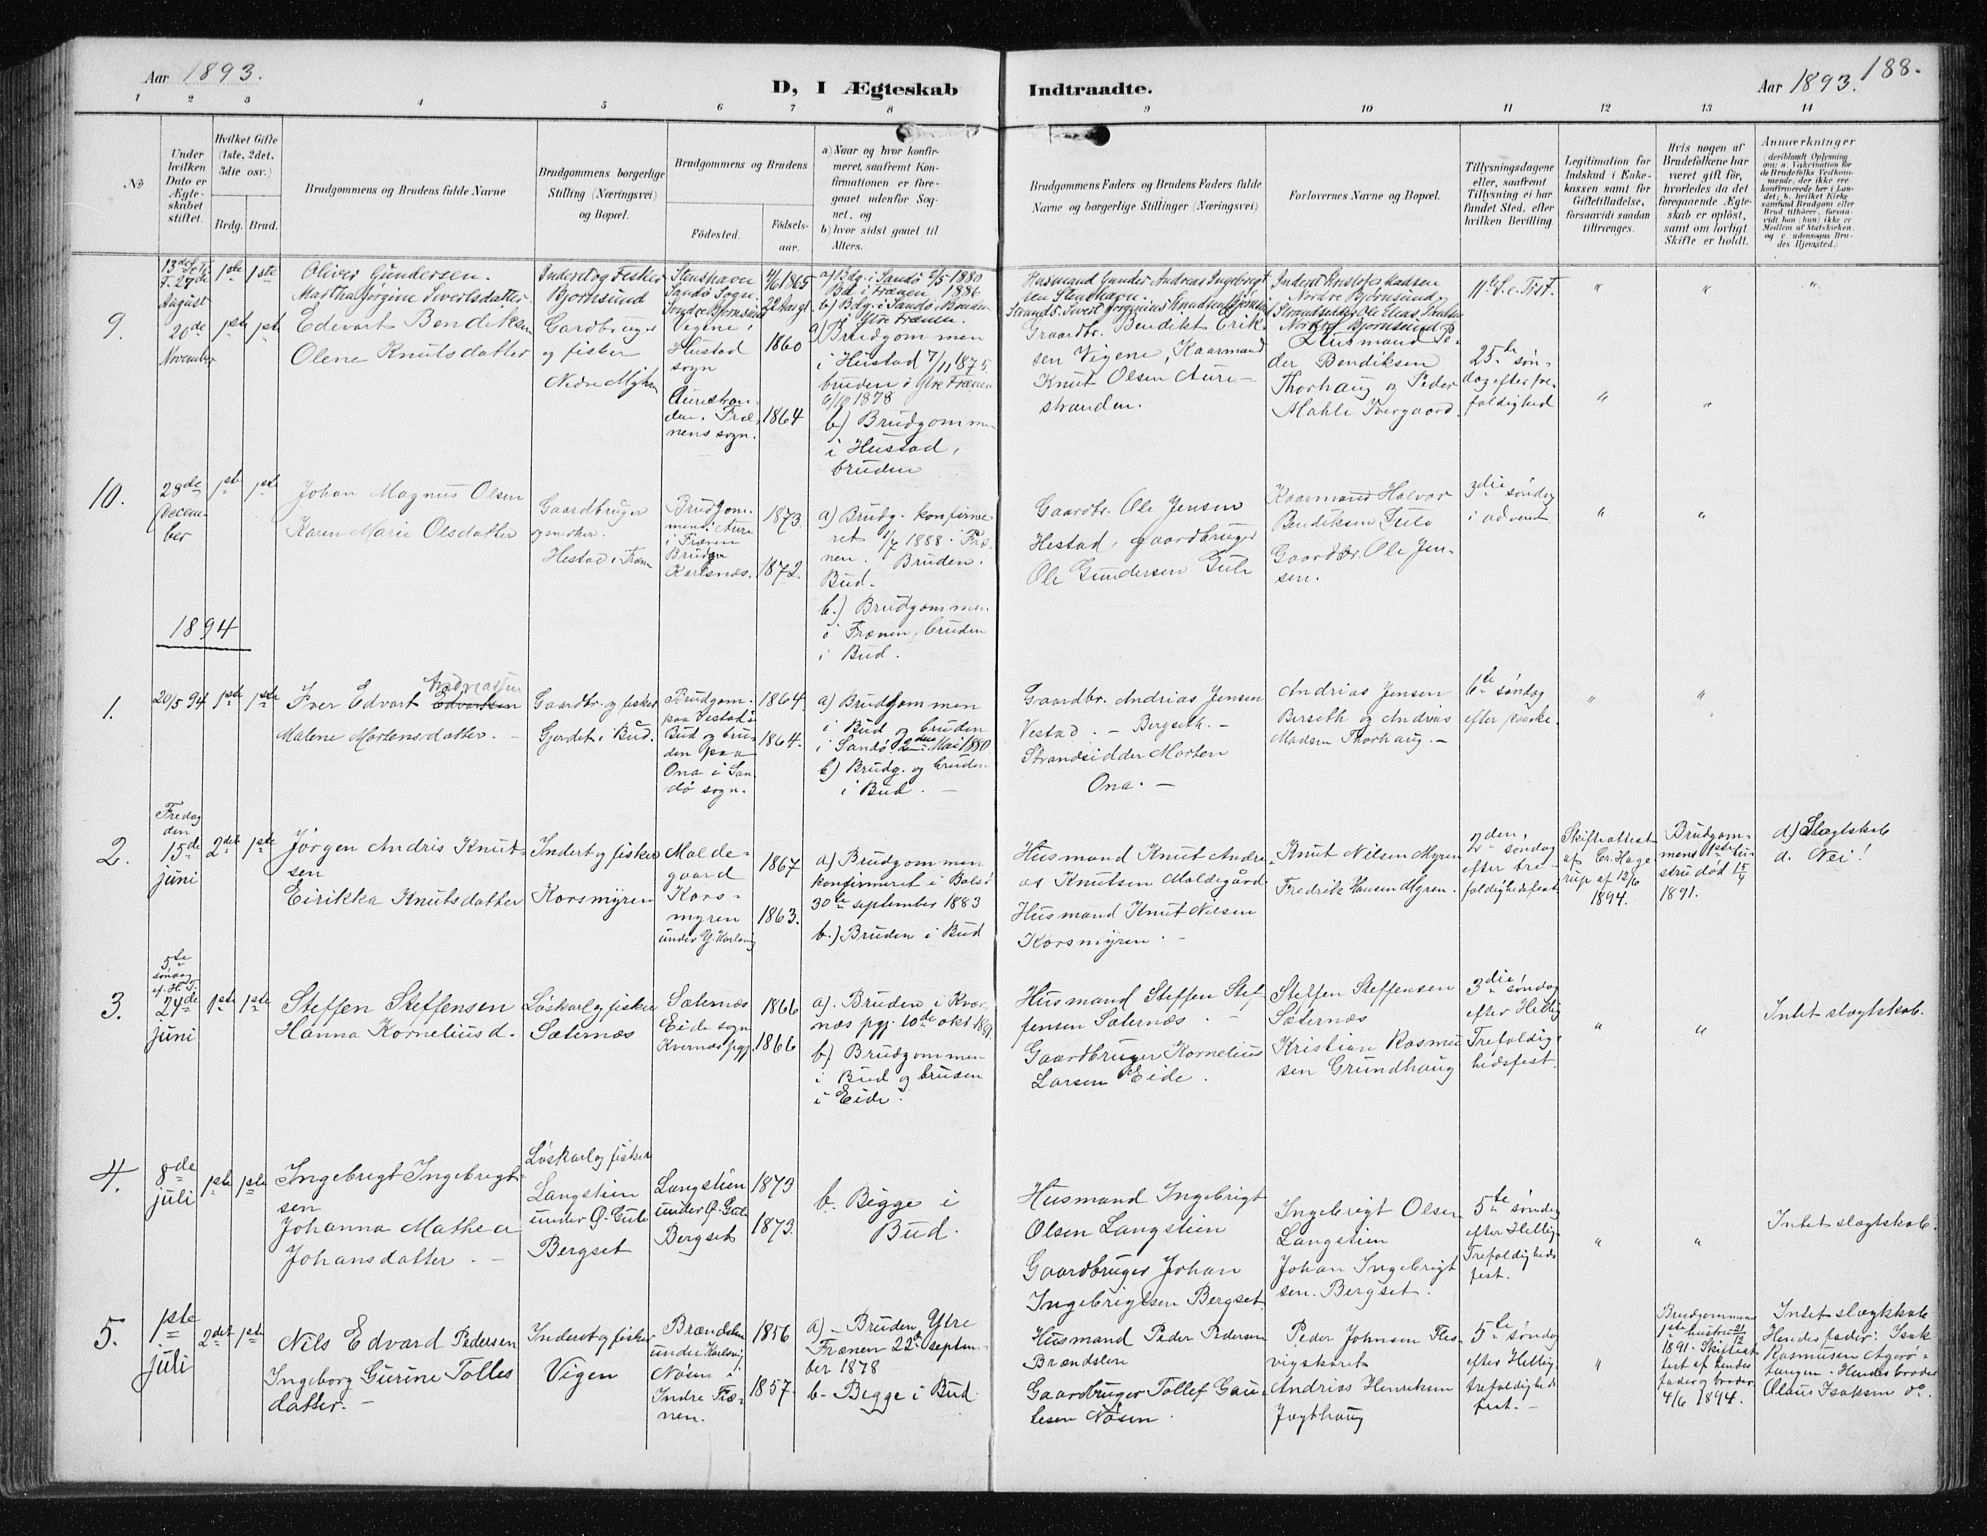 Aar 1893.
D, I Ægteskab
Indtraadte.
Aar 1893.
188.
1 2 3 4 5 6 7 8 9 10 11 12 13 14
No
Under hvilken Dato er Ægteskabet stiftet.
Hvilket Gifte (1ste, 2det, 3die osv.)
Brdg. Brud.
Brudgommens og Brudens fulde Navne
Brudgommens borgerlige Stilling (Næringsvei) og Bopæl.
Brudgommens og Brudens
Fødested.
Fødselsaar.
a) Naar og hvor konfirmeret, saafremt Konfirmationen er foregaaet udenfor Sognet, og
b) hvor sidst gaaet til Alters.
Brudgommens Faders og Brudens Faders fulde Navne og borgerlige Stillinger (Næringsvei)
Forlovernes Navne og Bopæl.
Tillysningsdagene eller, saafremt Tillysning ei har fundet Sted, efter hvilken Bevilling
Legitimation for Indskud i Enkekassen samt for Giftetilladelse, forsaavidt saadan tiltrænges.
Hvis nogen af Brudefolkene har været gift før, hvorledes da det foregaaende Ægteskab er opløst, samt om lovligt Skifte er holdt.
Anmærkninger
27de August
1ste 1ste
Oliver Gundersen.
Martha Jørgine Sivertsdatter
Inderst og Fisker
Bjornsund
Stenshavn
Sandø Sogn
4/6 1865
a) Bdg. i Sandø 1880
Bd. i Frænen 1886
b) Bdg. i Sandø. Bruden
i Ytre Frænen.
Husmand Gunder Andreas Ingebrigt
sen Stenshavn.
Nordre Bjornsund
" " "
9.
26de
November
1ste 1ste
Edevart Bendiksen
Olene Knutsdatter
Gaardbruger
og fisker
Nedre Myhr
Vigene i
Hustad
sogn
Aurestran-
den. Fræ-
nens sogn.
1860
1864
a) Brudgommen
i Hustad 7/11 1875
bruden i Ytre Frænen
6/10 1878
b) Brudgommen
i Hustad,
bruden
Graardbr. Bendikt Erik-
sen Vigene, Kaarmand
Knut Olsen Aure-
stranden.
Husmand Pe-
der Bendiksen
Thorhaug og Peder
Mahle Ivergaard.
25de søn-
dag efter tre-
foldighed
" "
10.
28de
Decem-
ber
1ste 1ste
Johan Magnus Olsen
Karen Marie Olsdatter
Gaardbruger
og smeker.
Hestad i Fræn
Brudgom-
mens: Aure
i Frænen
Bruden
Karlsnæs.
1873
1872.
a) Brudg. konfirme-
ret 1/7 1888. Fræ-
nen. Bruden i
Bud.
b.) Brudgommen
i Frænen, bruden
i Bud.
Gaardbr. Ole Jensen
Hestad, gaardbruger
Ole Gundersen Gule
Kaarmand Halvor
Bendiksen Gule
Gaardbr. Ole Jen-
sen.
3die søndag
i advent
" "
1894
1.
20/5 94
1ste 1ste
Andreassen
Iver Edvart Edvartsen
Malene Mortensdatter. -
Gaardbr. og fisker
Gjerdet i Bud.
Brudgom.
paa Vestad i
Bud og bru-
den paa
Ona i San-
dø sogn.
1864
1864.
a) Brudgommen
i Bud og bruden
i Sandø 2den Mai 1880
b) Brudg. og bruden
i Bud. -
Gaardbr. Andrias Jensen
Vestad. - Bergseth. -
Strandsidder Morten
Ona. -
Andrias Jensen
Berseth og Andrias
Madsen Thorhaug. -
6te søndag
efter paaske.
" "
2.
Fredag
den
15de
juni
2det 1ste
Jørgen Andris Knut-
sen
Eirikka Knutsdatter
Inderst og fisker
Korsmyren
Molde-
gaard
Kors-
myren
under Y. Harlsvig
1867
1863.
a) Brudgommen
konfirmeret i Bolsø
30te september 1883
b.) Bruden i Bud
Husmand Knut Andre-
as Knutsen Moldegård
Husmand Knut Nilsen
Korsmyren. -
Knut Nilsen Myren
Fredrik Hansen Myren.
2den søndag
efter tre
foldighedsfest
Skifteattest
af Cr. Hage
rup af 12/6
1894.
Brudgom-
mens 1ste hu-
stru død
1891.
d) Slægtskab
d. Nei!
3.
5te
søndag
ef. H. T.
24de
juni
1ste 1ste
Steffen Steffensen
Hanna Korneliusd.
Løskarl og fisker
Sæternæs
Sæternæs
Eide sogn
Kvernæs pgj.
1866
1866
a). Bruden i Kvær-
næs pgj. 10de okt 1881
b) Brudgommen
i Bud og bruden
i Eide.
Husmand Steffen Stef-
fensen Sæternæs. -
Gaardbruger Kornelius
Larsen Eide.
Steffen Steffensen
Sæternæs
Kristian Rasmu
sen Grundhaug
3die søndag
efter Hellig
Trefoldig-
hedsfest.
" "
Intet slægtskab.
4.
8de
juli
1ste 1ste
Ingebrigt Ingebrigt-
sen
Johanna Mathea
Johansdatter. -
Løskarl og fisker
Langstien
under Ø. Gule
Bergset
Langstien
under Ø. Gule
Bergset
1873
1873.
b. Bigge i
Bud.
Husmand Ingebrigt
Olsen Langstien
Gaardbruger Johan
Ingebrigtsen Bergset
Ingebrigt Olsen
Langstien
Johan Ingebrigt
sen. Bergset.
5te søndag
efter Hellig-
Trefoldigheds
fest.
" "
Intet slægtskab.
5.
1ste
juli
2det 1ste
Nils Edvard Pedersen
Ingeborg Gurine Tolles
datter. -
Inderst og fisker
Vigen
Brændslen
under Harlsvig
Nøsen i
Indre Fræ-
nen.
1856
1857.
a) - Bruden, Ytre
Frænen 22de septem-
ber 1878
b- Begge i Bud
Husmand Peder Pedersen
Brændslen
Gaardbruger Tollef Gau-
tesen Nøsen.
Peder Johnsen Fles-
vigskaret
Andrias Henriksen
Jagthaug
5te søndag
efter Hellig
trefoldigheds
fest. -
"
Brudgommens
1ste hustru
1891. Skifteat-
test af hendes
fader og broder
4/6 1894.
Intet slægtskab
Hendes fader: Isak
Rasmusen Agerø-
tangen. Hendes broder
Olaus Isaksen do.